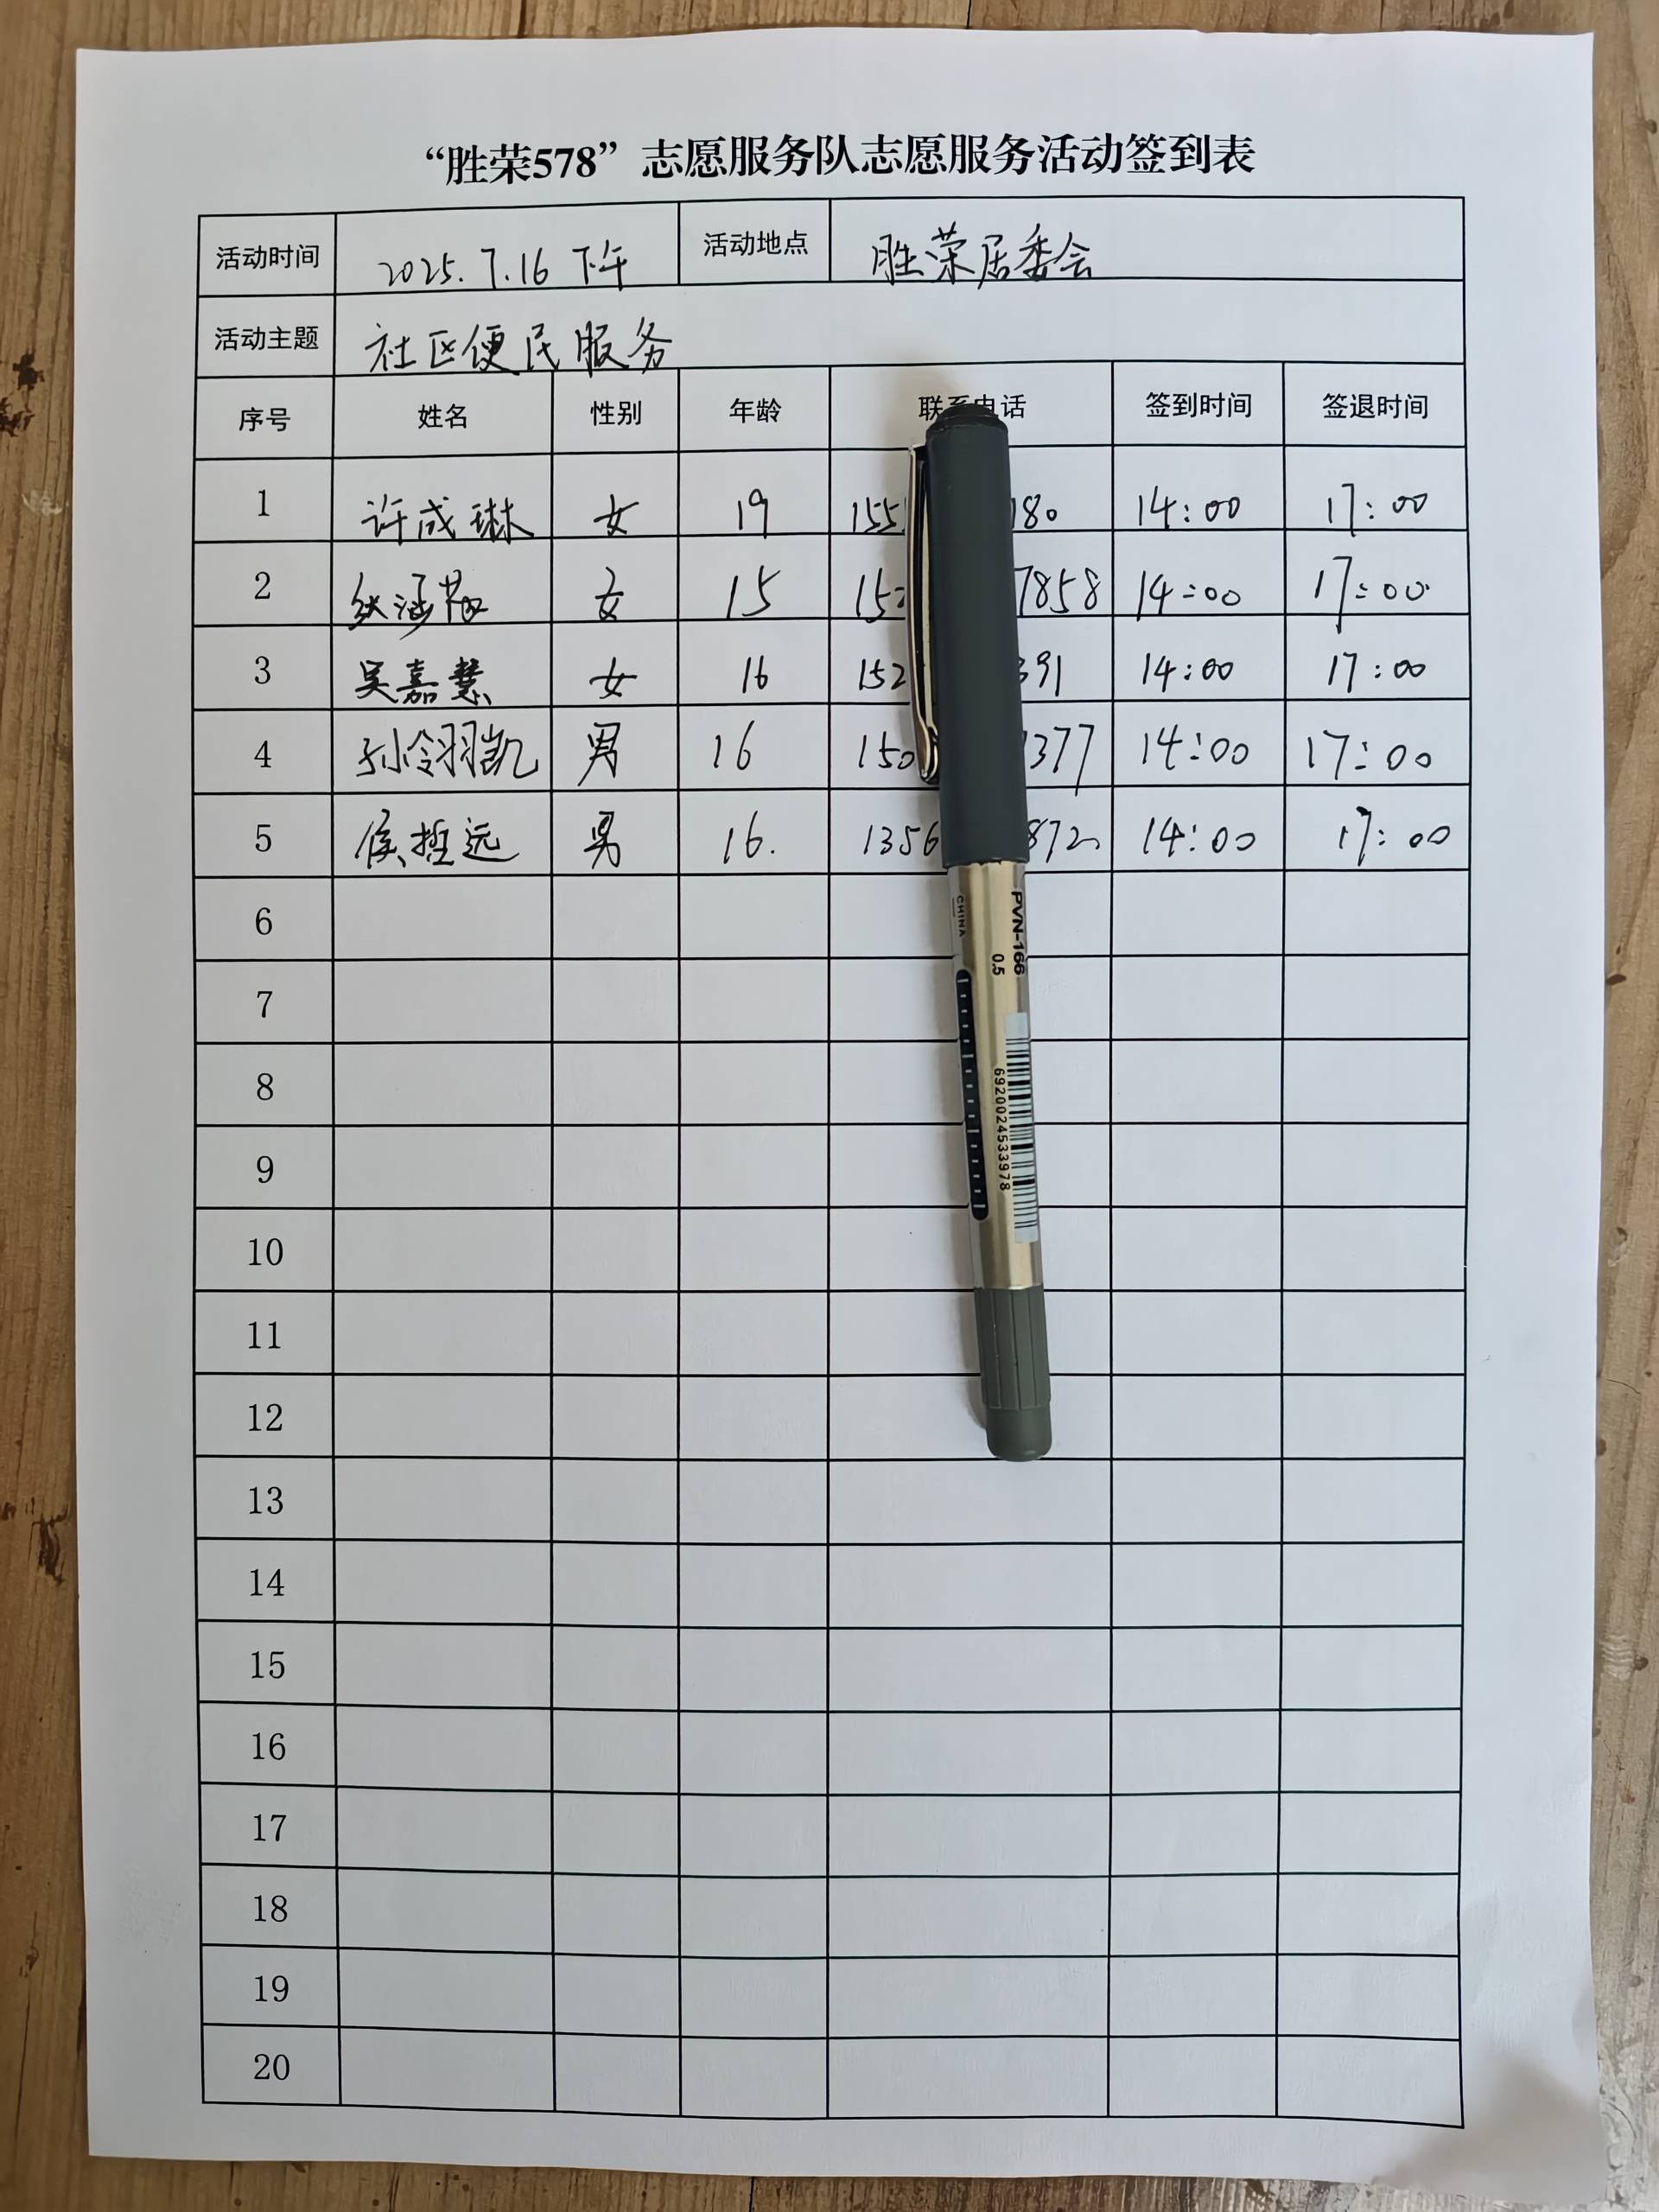 “胜荣578”志愿服务队志愿服务活动签到表
活动时间 2025.7.16 下午 活动地点 胜荣居委会
活动主题 社区便民服务
序号 姓名 性别 年龄 联系电话 签到时间 签退时间
1 许成琳 女 19 155 180 14:00 17:00
2 女 15 15 7858 14:00 17:00
3 吴嘉慧 女 16 152 391 14:00 17:00
4 孙翎翔凯 男 16 150 377 14:00 17:00
5 侯哲远 男 16. 1356 872 14:00 17:00
6
7
8
9
10
11
12
13
14
15
16
17
18
19
20
PVN-166
CHINA
0.5
6920024533978